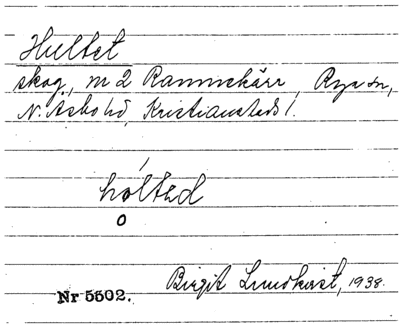 Hultet
skog, m 2 Rammekärr, Rya sn,
N. Åsbo hd, Kristianstads l.
hòltəd
o
Nr 5502. Birgit Lundkvist, 1938.